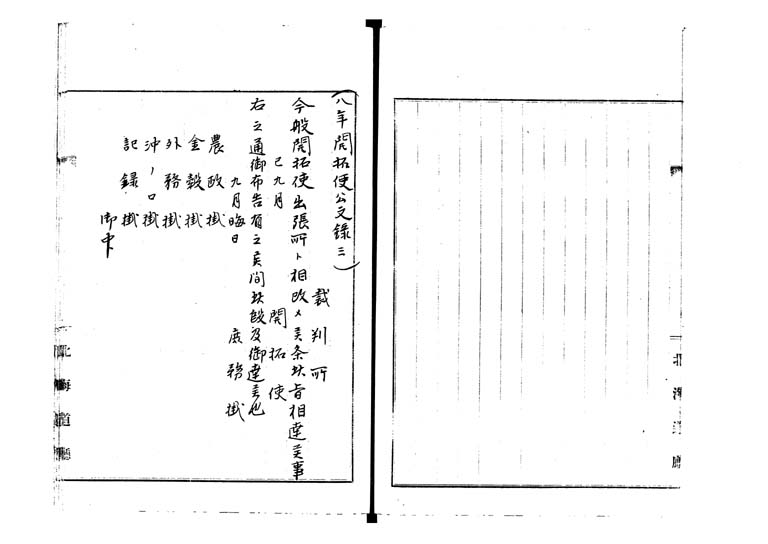 (八年開拓使公文録三)
裁判所
今般開拓使出張所ト相改メ候条此旨相達候事
己九月
開拓使
右之通御布告有之候間此段及御達候也
九月晦日
庶務掛
農政掛
金穀掛
外務掛
沖ノ口掛
記録掛
御中
北海道庁
北海道廳